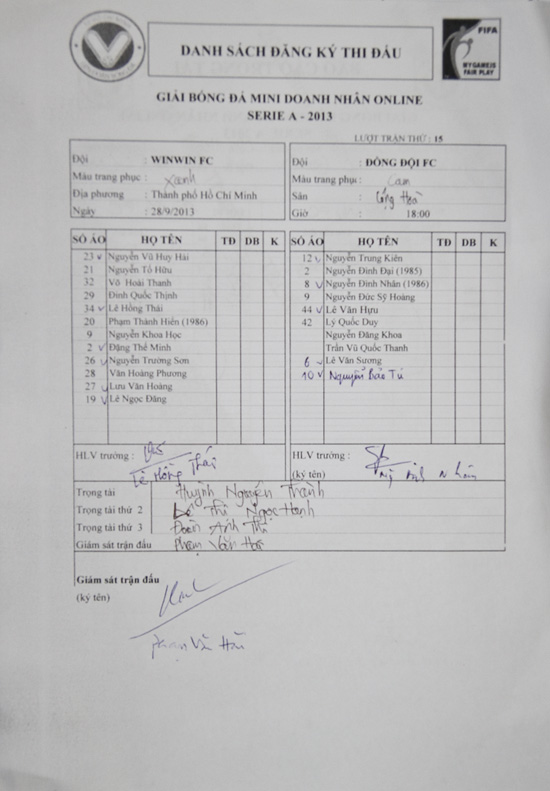 DANH SÁCH ĐĂNG KÝ THI ĐẤU
FIFA
MY GAME IS
FAIR PLAY
GIẢI BÓNG ĐÁ MINI DOANH NHÂN ONLINE
SERIE A - 2013
LƯỢT TRẬN THỨ : 15
Đội : WINWIN FC
Màu trang phục : Xanh
Địa phương : Thành phố Hồ Chí Minh
Ngày : 28/9/2013
Đội : ĐỒNG ĐỘI FC
Màu trang phụ : Cam
Sân : Cộng Hoà
Giờ : 18:00
SỐ ÁO HỌ TÊN TĐ DB K
23 v Nguyễn Vũ Huy Hải
21 Nguyễn Tố Hữu
32 Võ Hoài Thanh
29 Đinh Quốc Thịnh
34 v Lê Hồng Thái
20 Phạm Thành Hiến (1986)
9 Nguyễn Khoa Học
2 v Đặng Thế Minh
26 v Nguyễn Trường Sơn
28 Văn Hoàng Phương
27 v Lưu Văn Hoàng
19 v Lê Ngọc Đăng
SỐ ÁO HỌ TÊN TĐ DB K
12 v Nguyễn Trung Kiên
2 Nguyễn Đình Đại (1985)
8 v Nguyễn Đình Nhân (1986)
9 Nguyễn Đức Sỹ Hoàng
44 v Lê Văn Hựu
42 Lý Quốc Duy
Nguyễn Đăng Khoa
Trần Vũ Quốc Thanh
6 v Lê Văn Sương
10 v Nguyễn Bảo Tú
HLV trưởng :
Lê Hồng Thái
HLV trưởng :
(ký tên)
Trọng tài Huỳnh Nguyễn Thành
Trọng tài thứ 2 Lê Thị Ngọc Hạnh
Trọng tài thứ 3 Đoàn Anh Thi
Giám sát trận đấu Phạm Văn
Giám sát trận đấu
(ký tên)